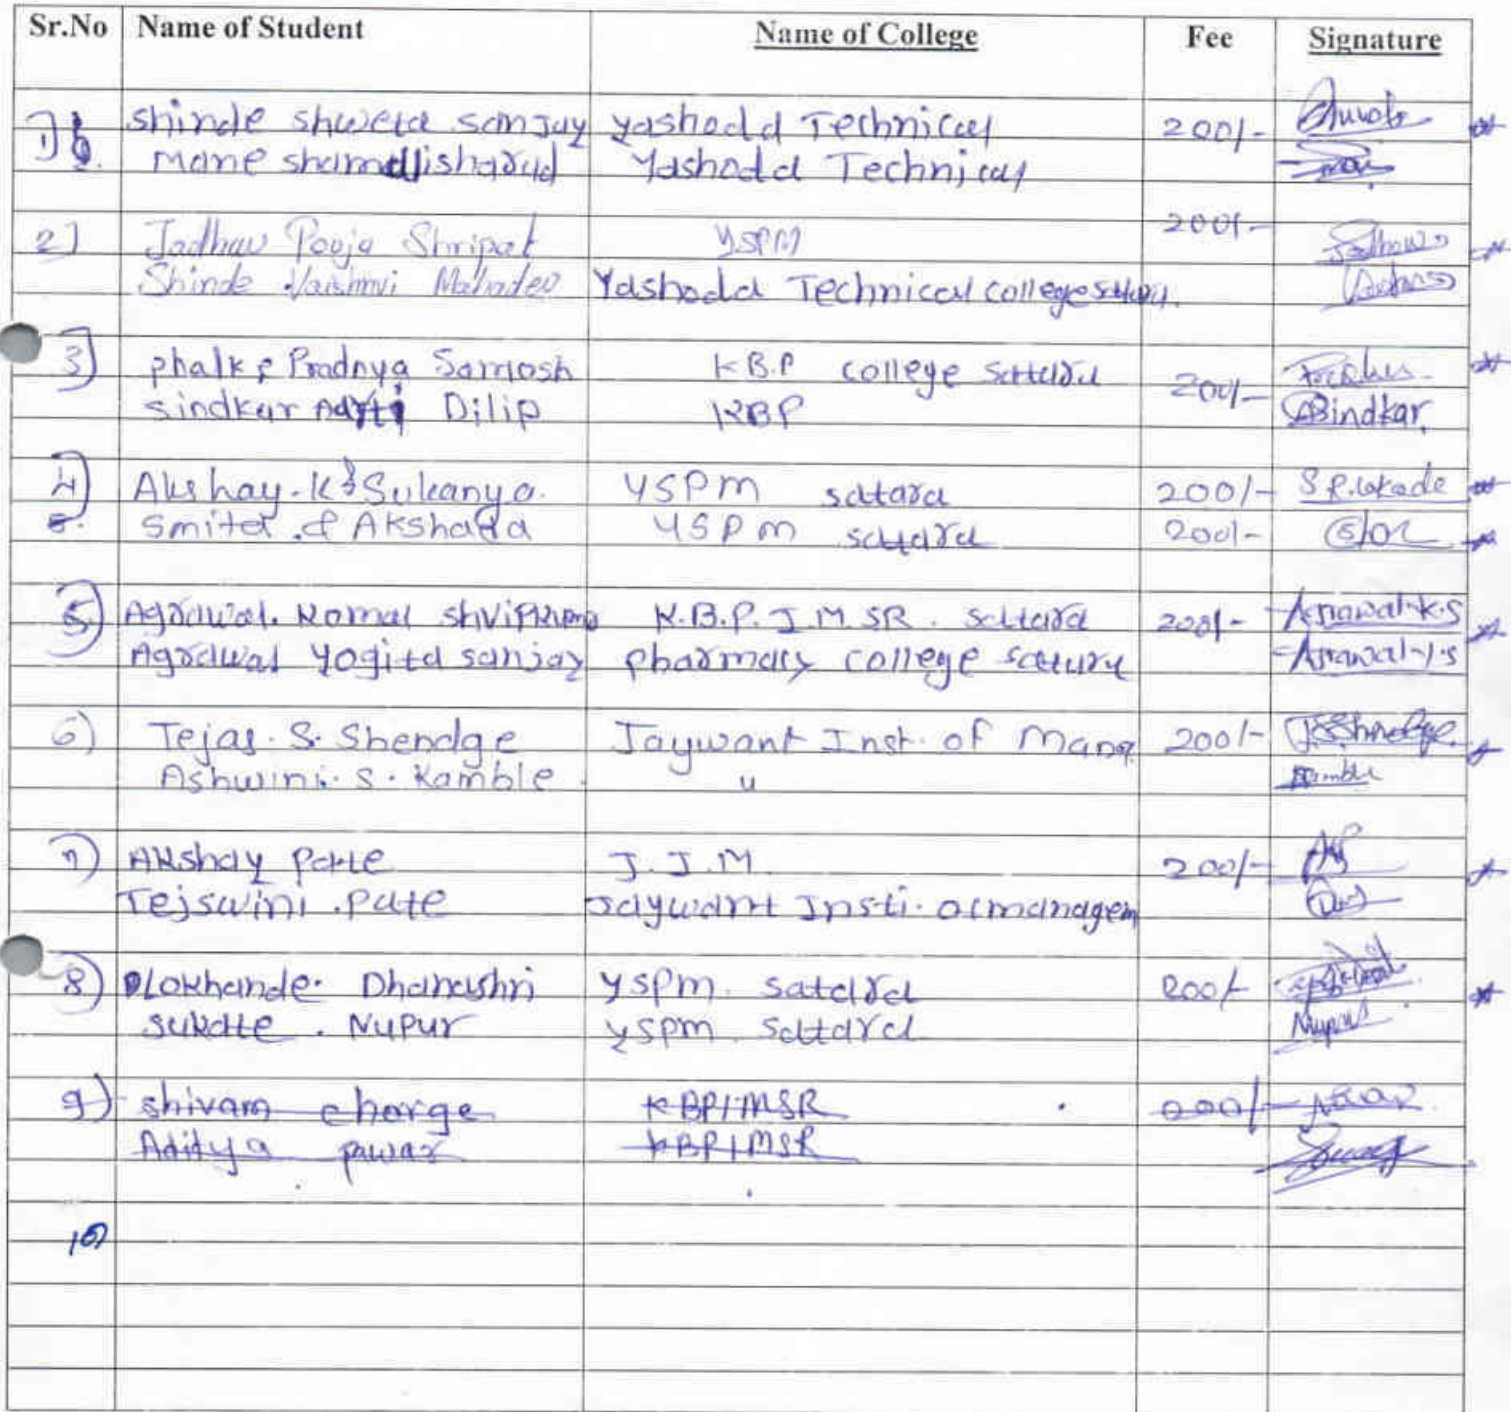 Sr.No Name of Student Name of College Fee Signature
1) shinde shweta sanjay yashoda Technical 200/-
Mane sharadisharad Yashoda Technical
2) Jadhav Pooja Shripat YSPM 200/- Jadhav
Shinde Vaishnvi Mahadeo Yashoda Technical college satara.
3) phalke Pradnya Santosh KBP college satara 200/-
sindkar Aarti Dilip KBP ASindkar
4) Akshay.K & Sukanya. YSPM satara 200/- S.R.Lokade
5. Smita & Akshada YSPM satara 200/-
5) Agrawal. Komal K.B.P.I.M.SR. satara 200/- Agrawal.K.S
Agrawal Yogita sanjay pharmacy college satara Agrawal.Y.S
6) Tejas. S. Shendge Jaywant Inst. of Mang. 200/-
Ashwini. S. Kamble. " Kamble
7) Akshay pate J.I.M. 200/-
Tejswini .pate Jaywant Insti. of managem
8) Lokhande. Dhanashri YSPM. satara 200/-
sukate . Nupur YSPM. satara Nupur
9) shivam chorge KBPIMSR 200/-
Aditya pawar KBPIMSR
10)